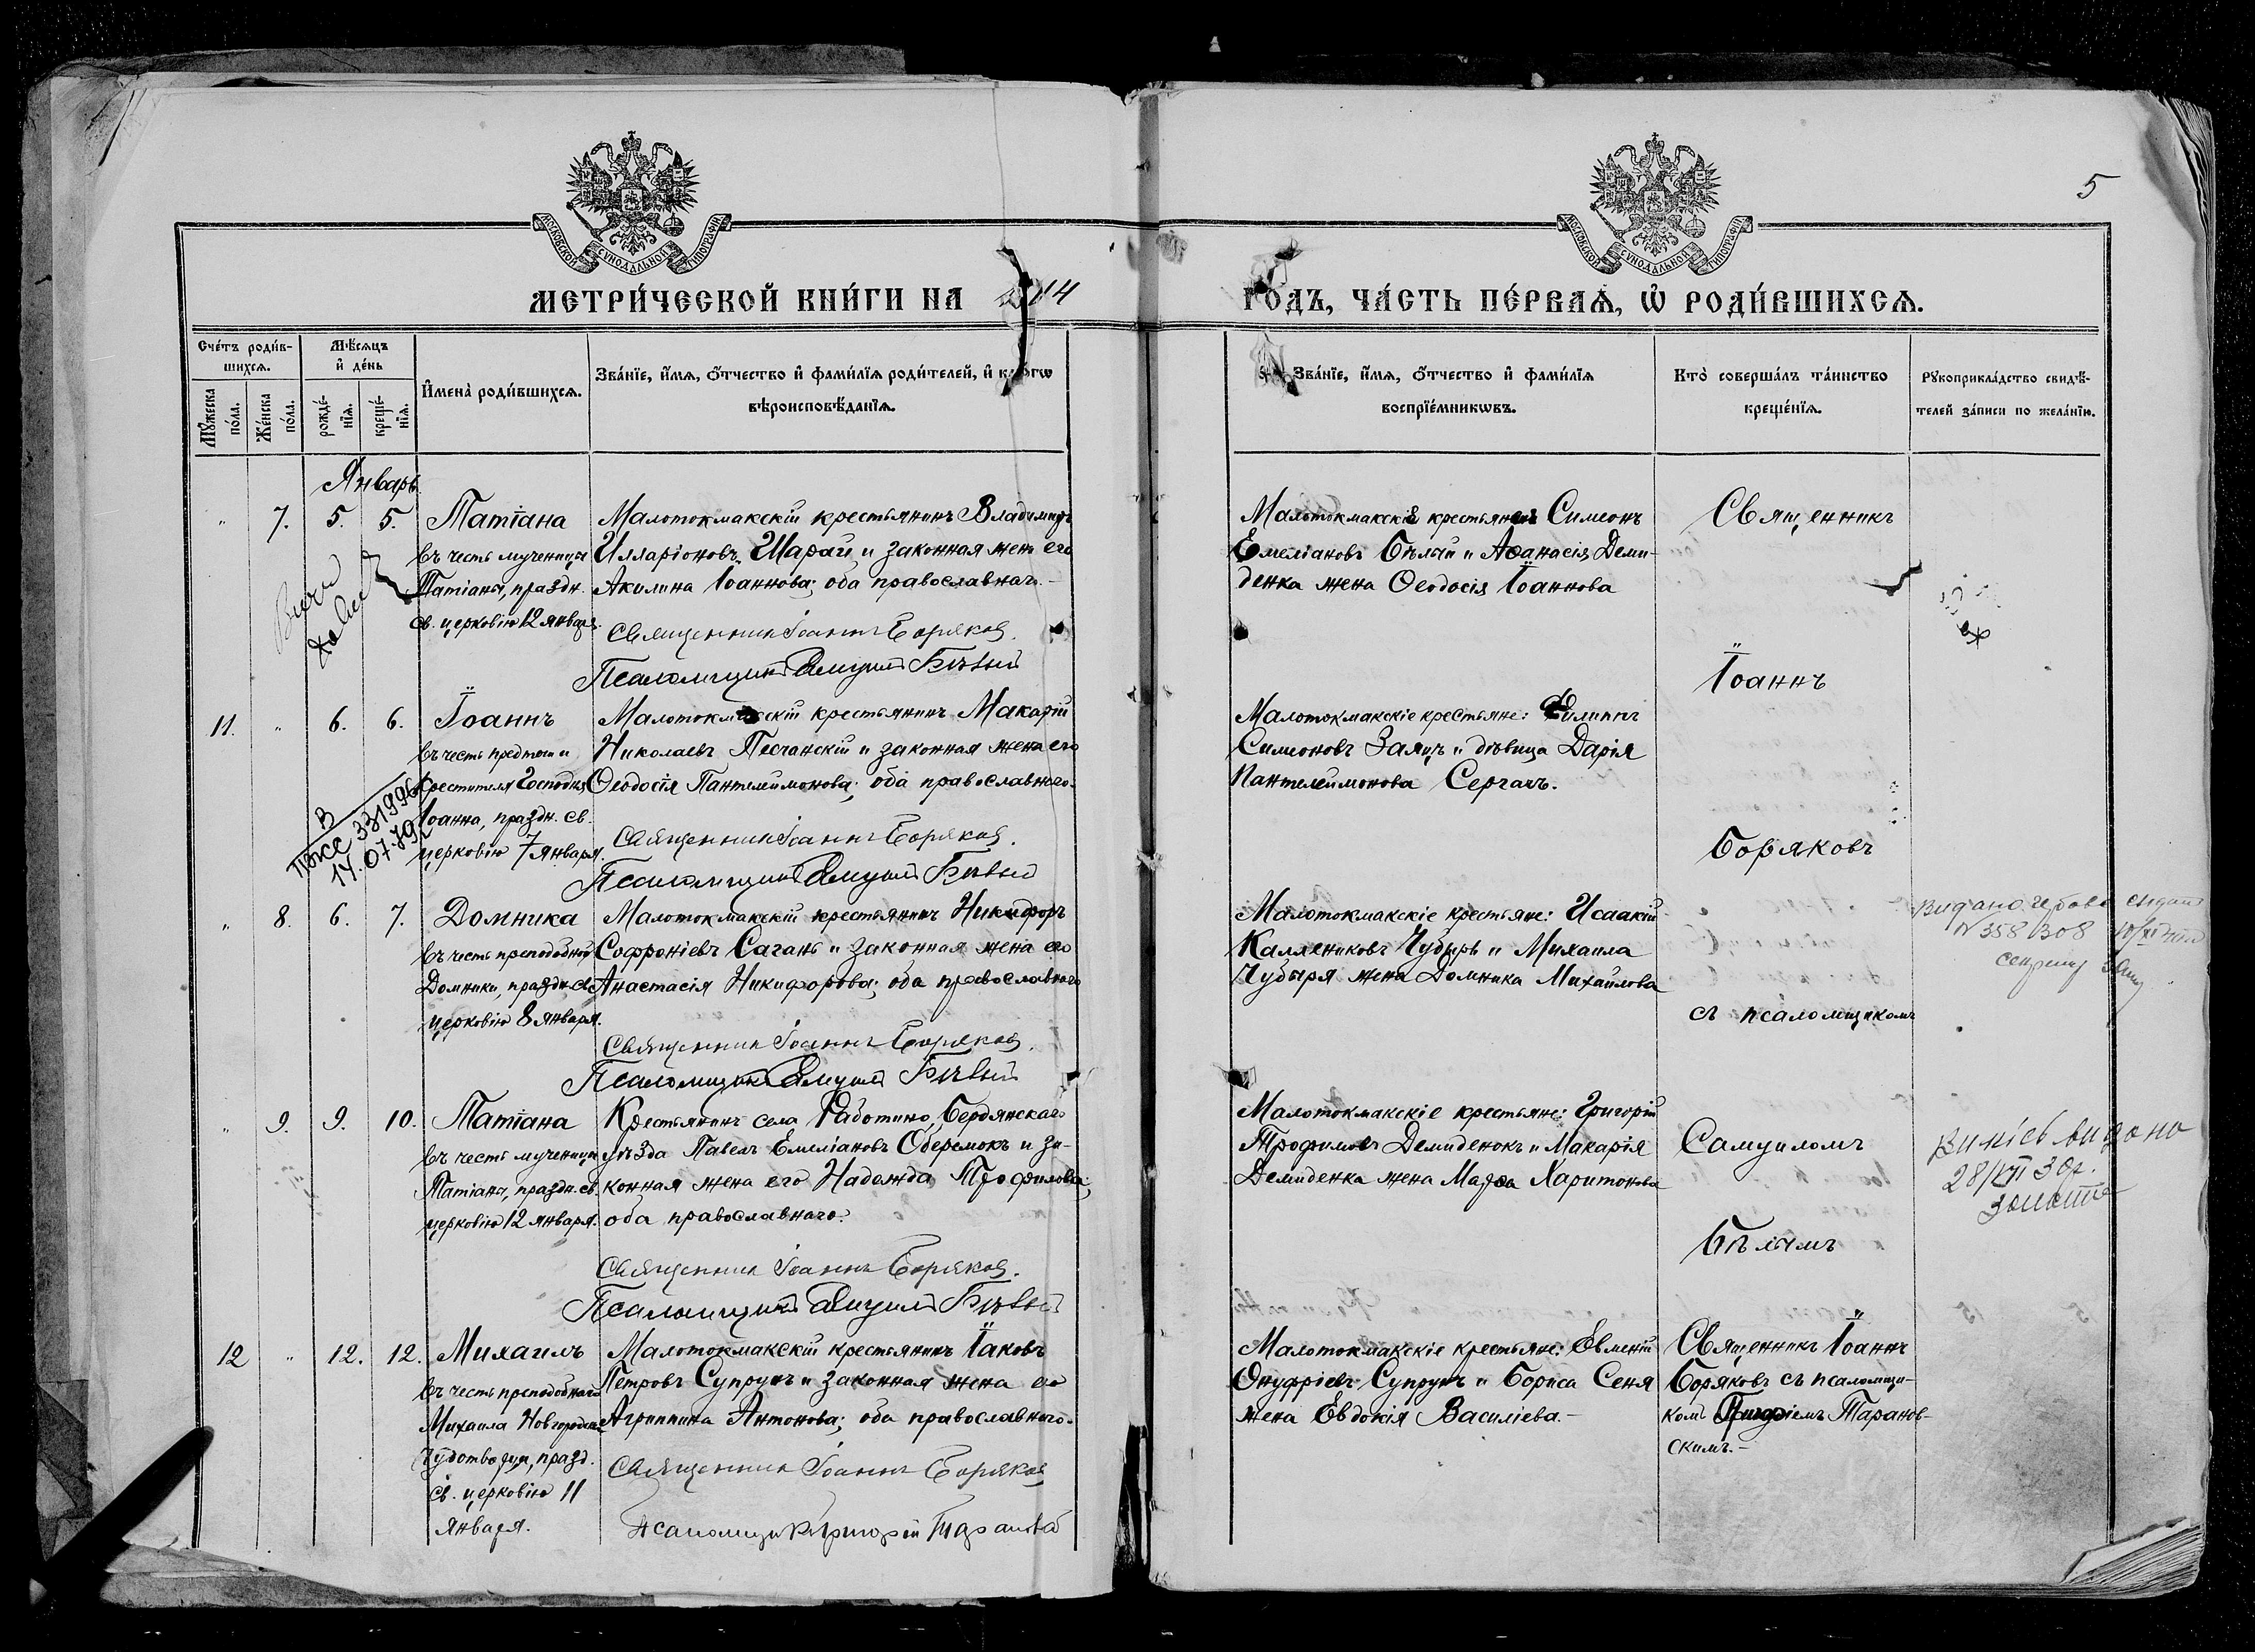 5
МОСКОВСКОЙ СУНОДАЛЬНОЙ ТИПОГРАФІИ
МОСКОВСКОЙ СУНОДАЛЬНОЙ ТИПОГРАФІИ
МЕТРИ́ЧЕСКОЙ КНИ́ГИ НА 14 ГОДЪ, ЧА́СТЬ ПЕ́РВАѦ, Ѡ҆ РОДИ́ВШИХСѦ.
Сче́тъ роди́в-
шихсѧ.
Мѣ́сѧцъ
и҆ де́нь
Мꙋ́жеска
по́ла.
Же́нска
по́ла.
рожде́-
нїѧ.
креще́-
нїѧ.
И҆мена̀ роди́вшихсѧ.
Зва́нїе, и҆́мѧ, ѻ҆́тчество и҆ фами́лїѧ роди́телей, и҆ како́гѡ
вѣроисповѣ́данїѧ.
Зва́нїе, и҆́мѧ, ѻ҆́тчество и҆ фами́лїѧ
воспрїе́мникѡвъ.
Кто̀ соверша́лъ та́инство
креще́нїѧ.
Рꙋкоприкла́дство свидѣ́-
телей за́писи по жела́нїю.
Январь
" 7. 5. 5.
Татіана
въ честь мученицы
Татіаны, праздн.
св. церковію 12 января.
Малотокмакскій крестьянинъ Владимиръ
Илларіоновъ Шарай и законная жена его
Акилина Іоаннова; оба православнаго.-
Священникъ Іоаннъ Боряковъ.
Псаломщикъ Самуилъ Бѣлый
Малотокмакскіе крестьяне: Симеонъ
Емеліановъ Бѣлый и Аѳанасія Деми-
денка жена Ѳеодосія Іоаннова
Священникъ
Іоаннъ
11. " 6. 6.
Іоаннъ
въ честь предтечи и
Крестителя Господня
Іоанна, праздн. св.
церковію 7 января.
В
14.07.79
Малотокмакскій крестьянинъ Макарій
Николаевъ Песчанскій и законная жена его
Ѳеодосія Пантелеимонова; оба православнаго.
Священникъ Іоаннъ Боряковъ.
Псаломщикъ Самуилъ Бѣлый
Малотокмакскіе крестьяне: Филиппъ
Симеоновъ Заяцъ и дѣвица Дарія
Пантелеимонова Сергачъ.
Боряковъ
" 8. 6. 7.
Домника
въ честь преподобной
Домники, праздн. св.
церковію 8 января.
Малотокмакскій крестьянинъ Никифоръ
Софроніевъ Сагань и законная жена его
Анастасія Никифорова; оба православнаго
Священникъ Іоаннъ Боряковъ.
Псаломщикъ Самуилъ Бѣлый
Малотокмакскіе крестьяне: Исаакій
Каллениковъ Чубырь и Михаила
Чубыря жена Домника Михайлова
съ псаломщикомъ
видано
N 358308
" 9. 9. 10.
Татіана
въ честь мученицы
Татіаны, праздн. св.
церковію 12 января.
Крестьянинъ села Работино, Бердянскаго
уѣзда Павелъ Емеліановъ Оберемокъ и за-
конная жена его Надежда Трофимова,
оба православнаго.
Священникъ Іоаннъ Боряковъ.
Псаломщикъ Самуилъ Бѣлый
Малотокмакскіе крестьяне: Григорій
Трофимовъ Демиденокъ и Макарія
Демиденка жена Марѳа Харитонова
Самуиломъ
Бѣлымъ
видано
12 " 12. 12.
Михаилъ
въ честь преподобнаго
Михаила Новгородск.
Чудотворца, празд.
св. церковію 11
января.
Малотокмакскій крестьянинъ Іаковъ
Петровъ Супрунъ и законная жена его
Агриппина Антонова; оба православнаго.
Священникъ Іоаннъ Боряковъ
Псаломщикъ Григорій
Малотокмакскіе крестьяне: Евменій
Онуфріевъ Супрунъ и Бориса Сеня
жена Евдокія Василіева.-
Священникъ Іоаннъ
Боряковъ съ псаломщи-
комъ Григоріемъ Таранов-
скимъ.-